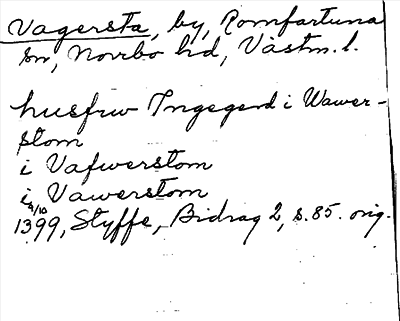 Vagersta, by, Romfartuna
sn, Norrbo hd, Västm. l.
husfrw Ingegerd i Wawer-
stom
i Vafwerstom
i Vawerstom
9/10
1399, Styffe, Bidrag 2, s. 85. orig.